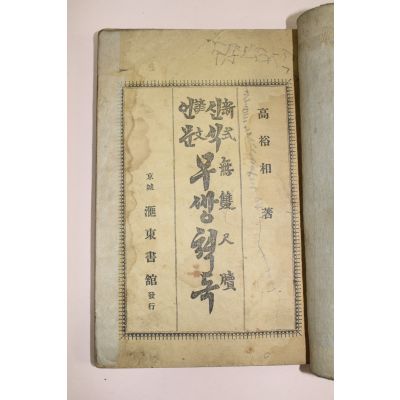 高裕相 著
新式
신식
諺文
언문
無雙尺牘
무쌍척독
京城 滙東書館 發行